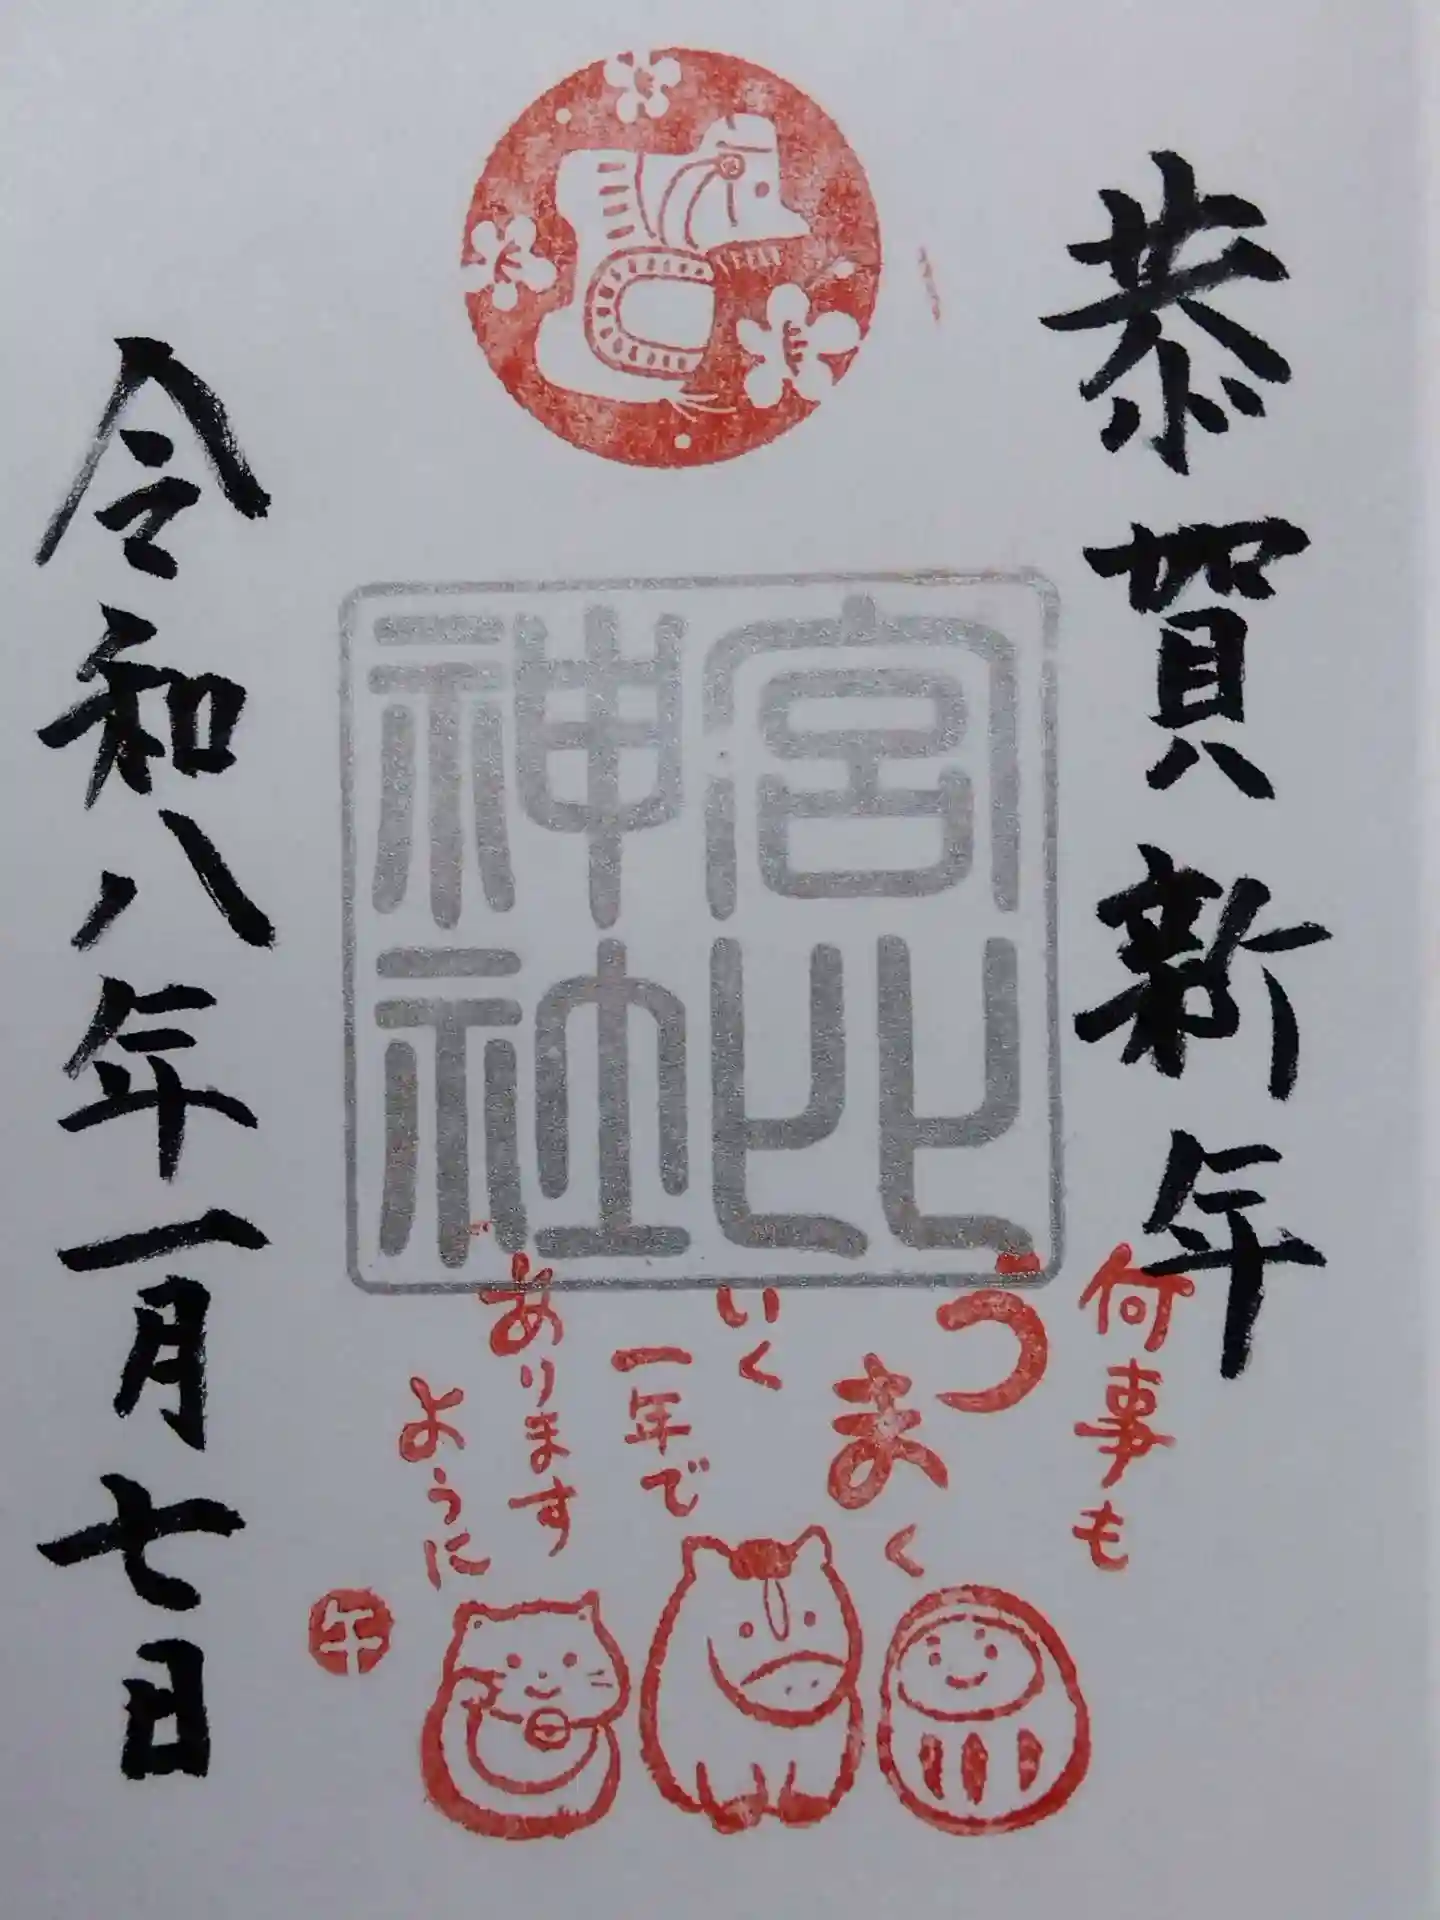 恭賀新年
何事も
うまく
いく
一年で
あります
ように
宮比
神社
午
令和八年一月七日